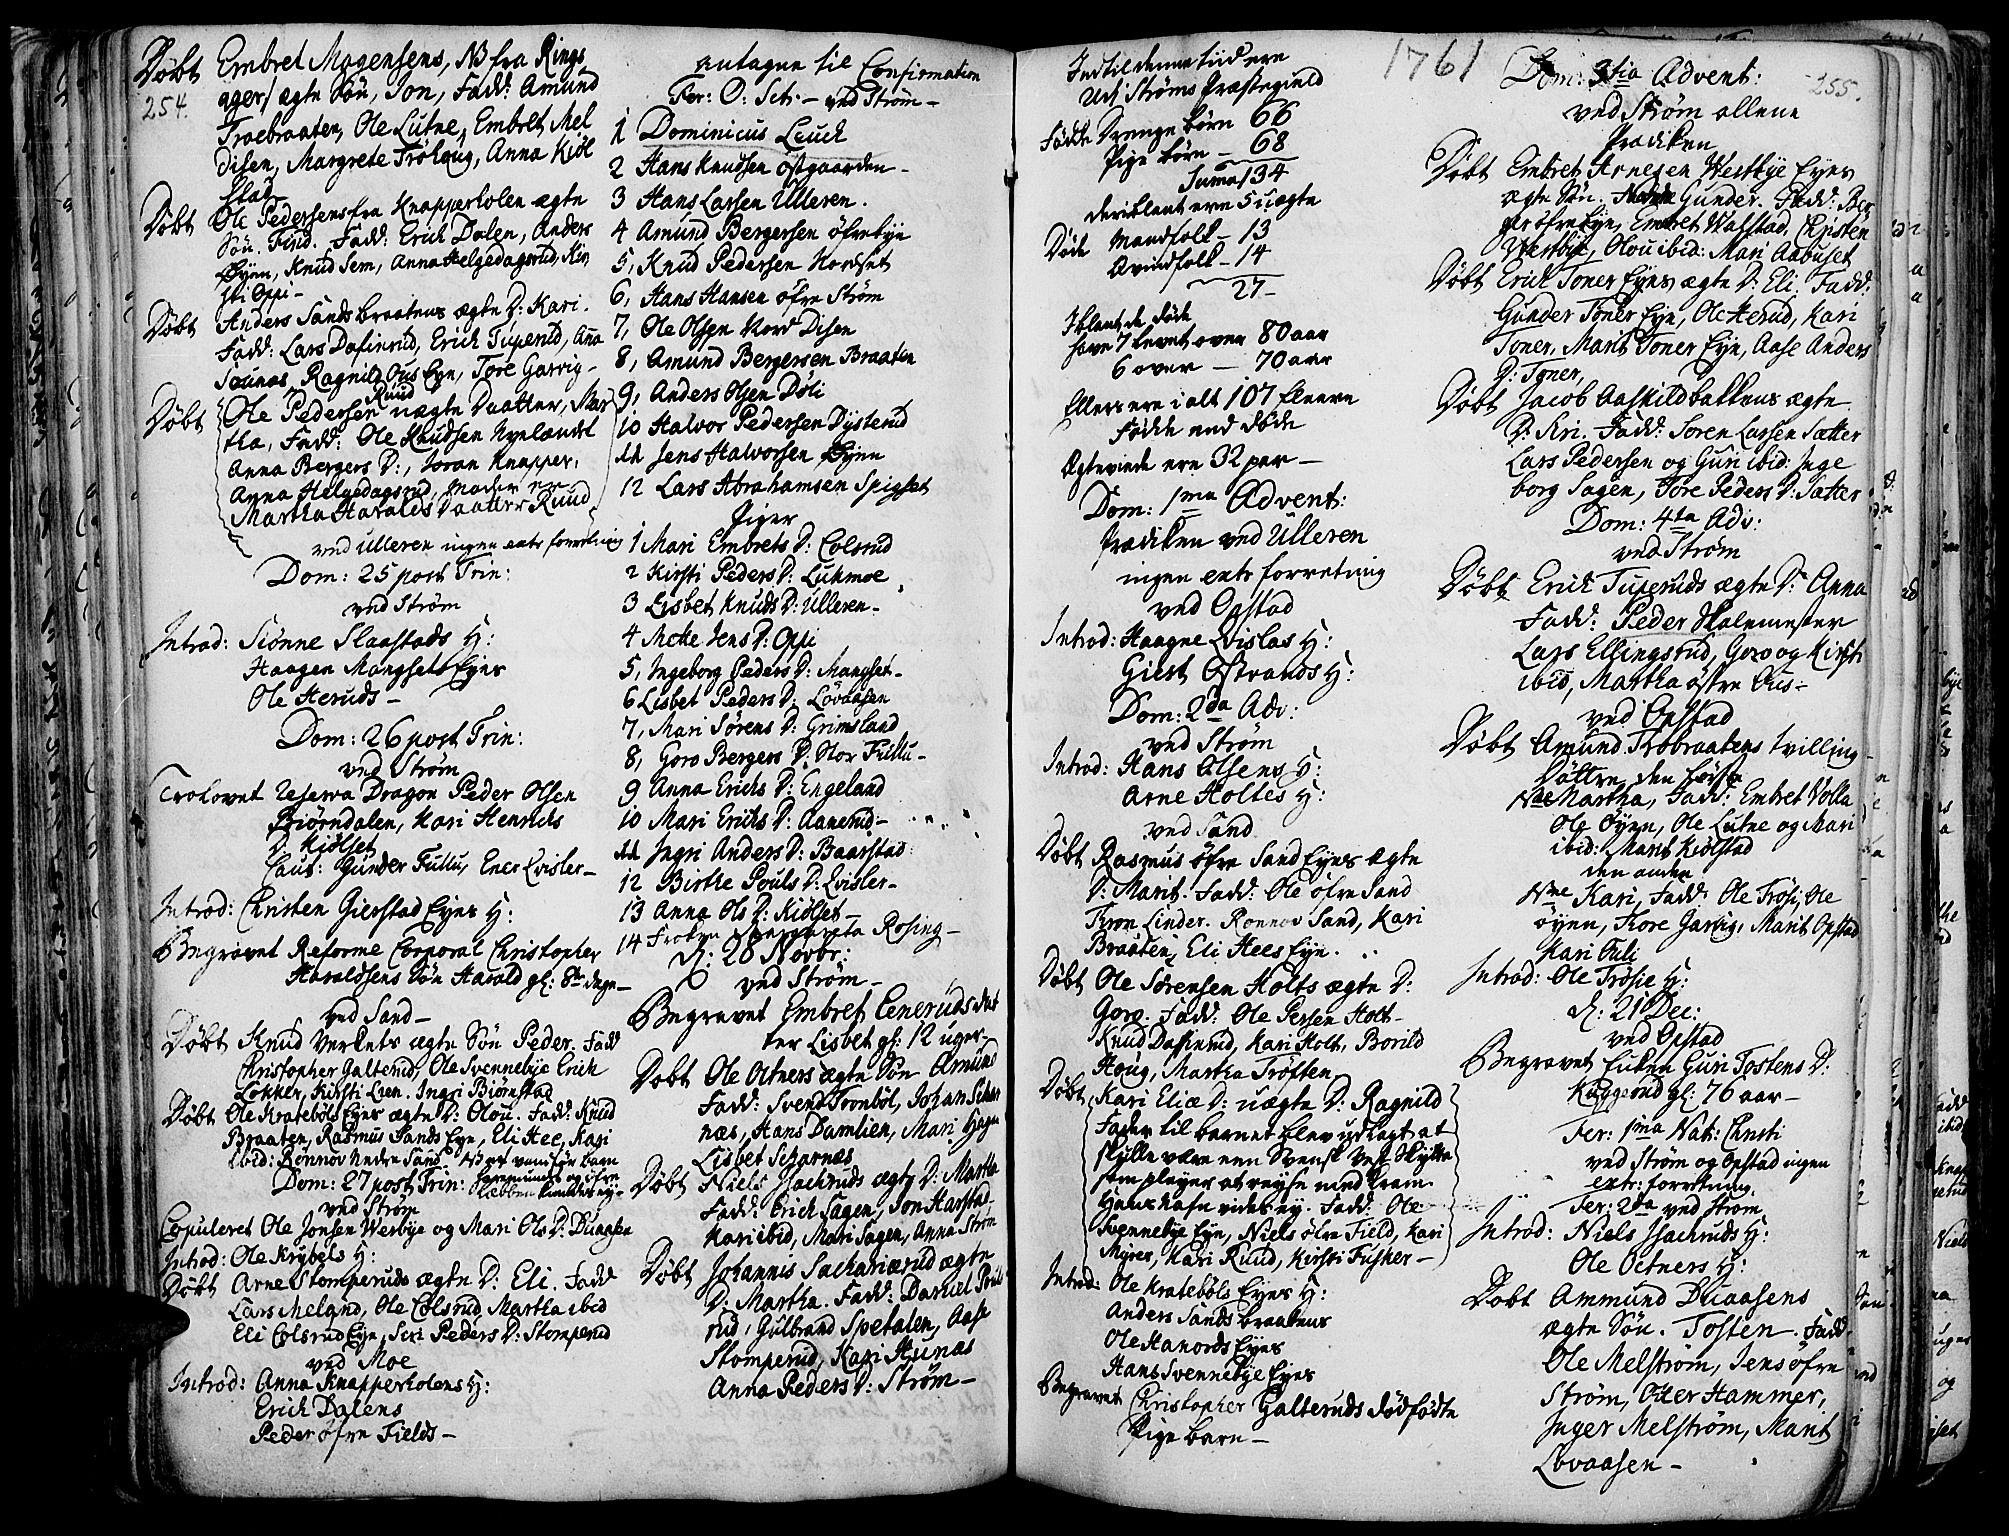 254.
Døbt Embret Mogensens, NB fra Rings
ager/ ægte Søn, Jon, Fadd: Amund
Troebraaten, Ole Lutne, Embret Mel
disen, Margrete Trøhaug, Anna Kiøl
stad
Døbt Ole Pedersens fra Knapperholen ægte
Søn. Find. Fadd: Erich Dalen, Anders
Øyen, Knud Sem, Anna Helgedagsrud, Kir
sti Oppi -
Døbt Anders Sandsbraatens ægte D: Kari.
Fadd: Lars Dafinrud, Erich Tuperud, Ana
Ragnild Ous Eyn, Tore Garvig -
Døbt Ole Pedersen Ruud uægte Daatter, Mar
tha, Fadd: Ole Knudsen
Anna Bergers D:, Joran Knapper,
Anna Helgedagsrud, Moder er
Martha Haralds Daatter Ruud
ved Ulleren ingen extr forretning
Dom: 25 post Trin:
ved Strøm
Introd: Siønne Slaastads H:
Haagen Mangsets Eyes
Ole Heruds -
Dom: 26 post Trin:
ved Strøm
Trolovet Reserva Dragon Peder Olsen
Biørndalen, Kari Henrichs
D. Kiølset
Caut: Gunder Fullu, Ener Qvisler -
Introd: Christen Gierstad Eyes H:
Begravet Reforme Corporal Christopher
Haraldsens Søn Harald gl: 8te dage -
ved Sand -
Døbt Knud Verkets ægte Søn Peder. Fadd
Christopher Galterud, Ole Svennebye Erich
Løkker, Kirsti Loen. Ingri Biørnstad
Døbt Ole Kratebøls Eyes ægte D: Olou. Fadd: Knud
Braaten, Rasmus Sands Eyn, Eli Hee, Kari
ibid: Rønnov Nedre Sand
Dom: 27 post Trin:
ved Strøm
Copuleret Ole Jonsen Wesbye og Mari Ols D: Duaasen
Introd: Ole Krybels H:
Døbt Arne Stomperuds ægte D: Eli. Fadd
Lars Meland, Ole Colsrud, Martha ibid
Eli Colsrud Eyn, Siri Peders D: Stomperud
ved Moe
Introd: Anna Knapperholens H:
Erich Dalens
Peder øfre Fields -
antagne til Confirmation
Per: O: Sch: - ved Strøm -
1 Dominicus Leuch
2 Hans Knudsen Østgaarden -
3 Hans Larsen Ulleren.
4 Amund Bergersen øfrebye
5, Knud Pedersen Nordset
6, Hans Hansen øfre Strøm
7, Ole Olsen Nord Disen
8, Amund Bergersen Braaten
9, Anders Olsen Døli
10 Halvor Pedersen Dysterud
11 Jens Halvorsen Øyen
12 Lars Abrahamsen Spigset
Piger
1 Mari Embrets D: Colsrud
2 Kirsti Peders D: Lukmoe
3 Lisbet Knuds D: Ulleren -
4 Mette Jens D: Oppi
5, Ingeborg Peders D: Mangset -
6 Lisbet Peders D: Løvaasen
7, Mari Sørens D: Grimsland
8, Goro Bergers D: Stor Fullu -
9 Anna Erichs D: Engeland
10 Mari Erichs D: Aanerud -
11 Ingri Anders D: Baarstad
12 Birthe Pouls D: Qvisler -
13 Anna Ols D: Kiølset -
14 Frøken Margareta Rosing -
d: 28 Novbr:
ved Strøm -
Begravet Embret Eeneruds dat
ter Lisbet gl: 12 uger -
Døbt Ole Ottners ægte Søn Amund
Fadd: Svend Trondbøl, Johan Schar
næs, Hans Damlien, Mari Hagen
Lisbet Scharnæs
Døbt Niels Isachruds ægte D: Martha
Fadd: Erich Sagen, Jon Harstad -
Kari ibid, Mari Sagen, Anna Strøm
Døbt Johannis Sachariærud ægte
D: Martha. Fadd: Daniel Pouls
rud, Gulbrand Spetalen, Aase
Stomperud, Kari Stunæs
Anna Peders D: Strøm -
1761
Indtil denne tiid ere
Udj Strøms Præstegield
Fødte Drenge børn 66
Pige børn - 68
Suma 134
deriblant ere 5 uægte
Døde Mandfolk - 13
Qvindfolk - 14
27 -
Iblant de døde
have 7 levet over 80 aar
6 over - 70 aar
Ellers ere i alt 107 fleere
Fødde end døde
Ægteviede ere 32 par -
Dom: 1ma Advent:
Prædiken ved Ulleren
ingen extr forretning
ved Opstad
Introd: Haagne Qvislas H:
Giert Ostrands H:
Dom: 2da Adv:
ved Strøm
Introd: Hans Olsens H:
Arne Holtes H:
ved Sand
Døbt Rasmus øfre Sand Eyes ægte
D: Marit. Fadd: Ole øfre Sand
Tron Linder. Rønnov Sand, Kari
Braaten, Eli Hees Eyn.
Døbt Ole Sørensen Holts ægte D:
Goro. Fadd: Ole Persen Holt -
Knud Dafinrud, Kari Holt, Borild
Houg, Martha Trøften
Døbt Kari Eliæ D: uægte D: Ragnild
Fader til barnet blev udlagt at
skulle være een Svensk
som pleyer at reyse med Kram
Fadd: Ole
Svennebye Eyn, Niels øfre Field, Kari
Myrer, Kari Ruud, Kirsti Fusker -
Introd: Ole Kratebøls Eyes H:
Anders Sandsbraatens
Ole Hanords Eyes
Hans Svennebye Eyes
Begravet Christopher Galteruds dødfødte
Pige barn -
255.
Dom: 3tia Advent:
ved Strøm allene
Prædiken
Døbt Embret Arnesen Westbye Eyes
ægte Søn. Gunder. Fadd: Ber
ger øfrebye Eyn, Embret Walstad, Christen
Westbye, Olou ibid: Mari Aabuset
Døbt Erich Toner Eyes ægte D: Eli. Fadd:
Gunder Toner Eyn, Ole Herud, Kari
Toner, Marit Toner Eyn, Aase Anders
D: Toner,
Døbt Jacob Aaskildbakkens ægte
D: Siri. Fadd: Soren Larsen Sætter
Lars Pedersen og Guri ibid: Inge
borg Sagen, Tore Peders D: Sætter
Dom: 4ta Adv:
ved Strøm
Døbt Erich Tuperuds ægte D: Anna
Fadd: Peder Skolemester
Lars Ellingsrud, Goro og Kirsti
ibid, Martha østre Ous -
ved Opstad
Døbt Amund Trøbraatens tvilling
Døttre, den første
Nne Martha, Fadd: Embret Volla
Ole Øyen, Ole Lutne og Mari
ibid: Marit Kiølstad
den anden
Nne Kari, Fadd: Ole Trøsi, Ole
Øyen, Tore Garvig, Marit Opstad
Kari Tuli
Introd: Ole Trøsie H:
d: 21 Dec:
ved Opstad
Begravet Enken Guri Tostens D:
Kuggerud gl: 76 aar -
Fer: 1ma Nat: Christi
ved Strøm og Opstad ingen
extr: forretning.
Fer: 2da ved Strøm
Introd: Niels Isachruds H:
Ole Ottners H:
Døbt Ammund Duaasens
ægte Søn. Tosten. Fadd.
Ole Melstrøm, Jens øfre
Strøm, Otter Hammer,
Inger Melstrøm, Marit
Løvaasen -